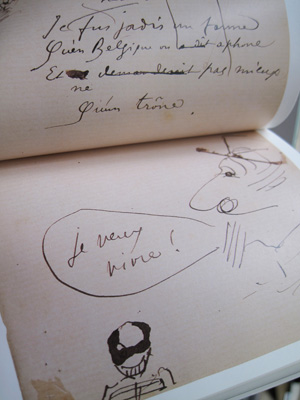 Je fus jadis un
Qu'en Belgique on a dit aphone
Et demandait pas mieux
ne
Qu'un trône.
Je veux
vivre !